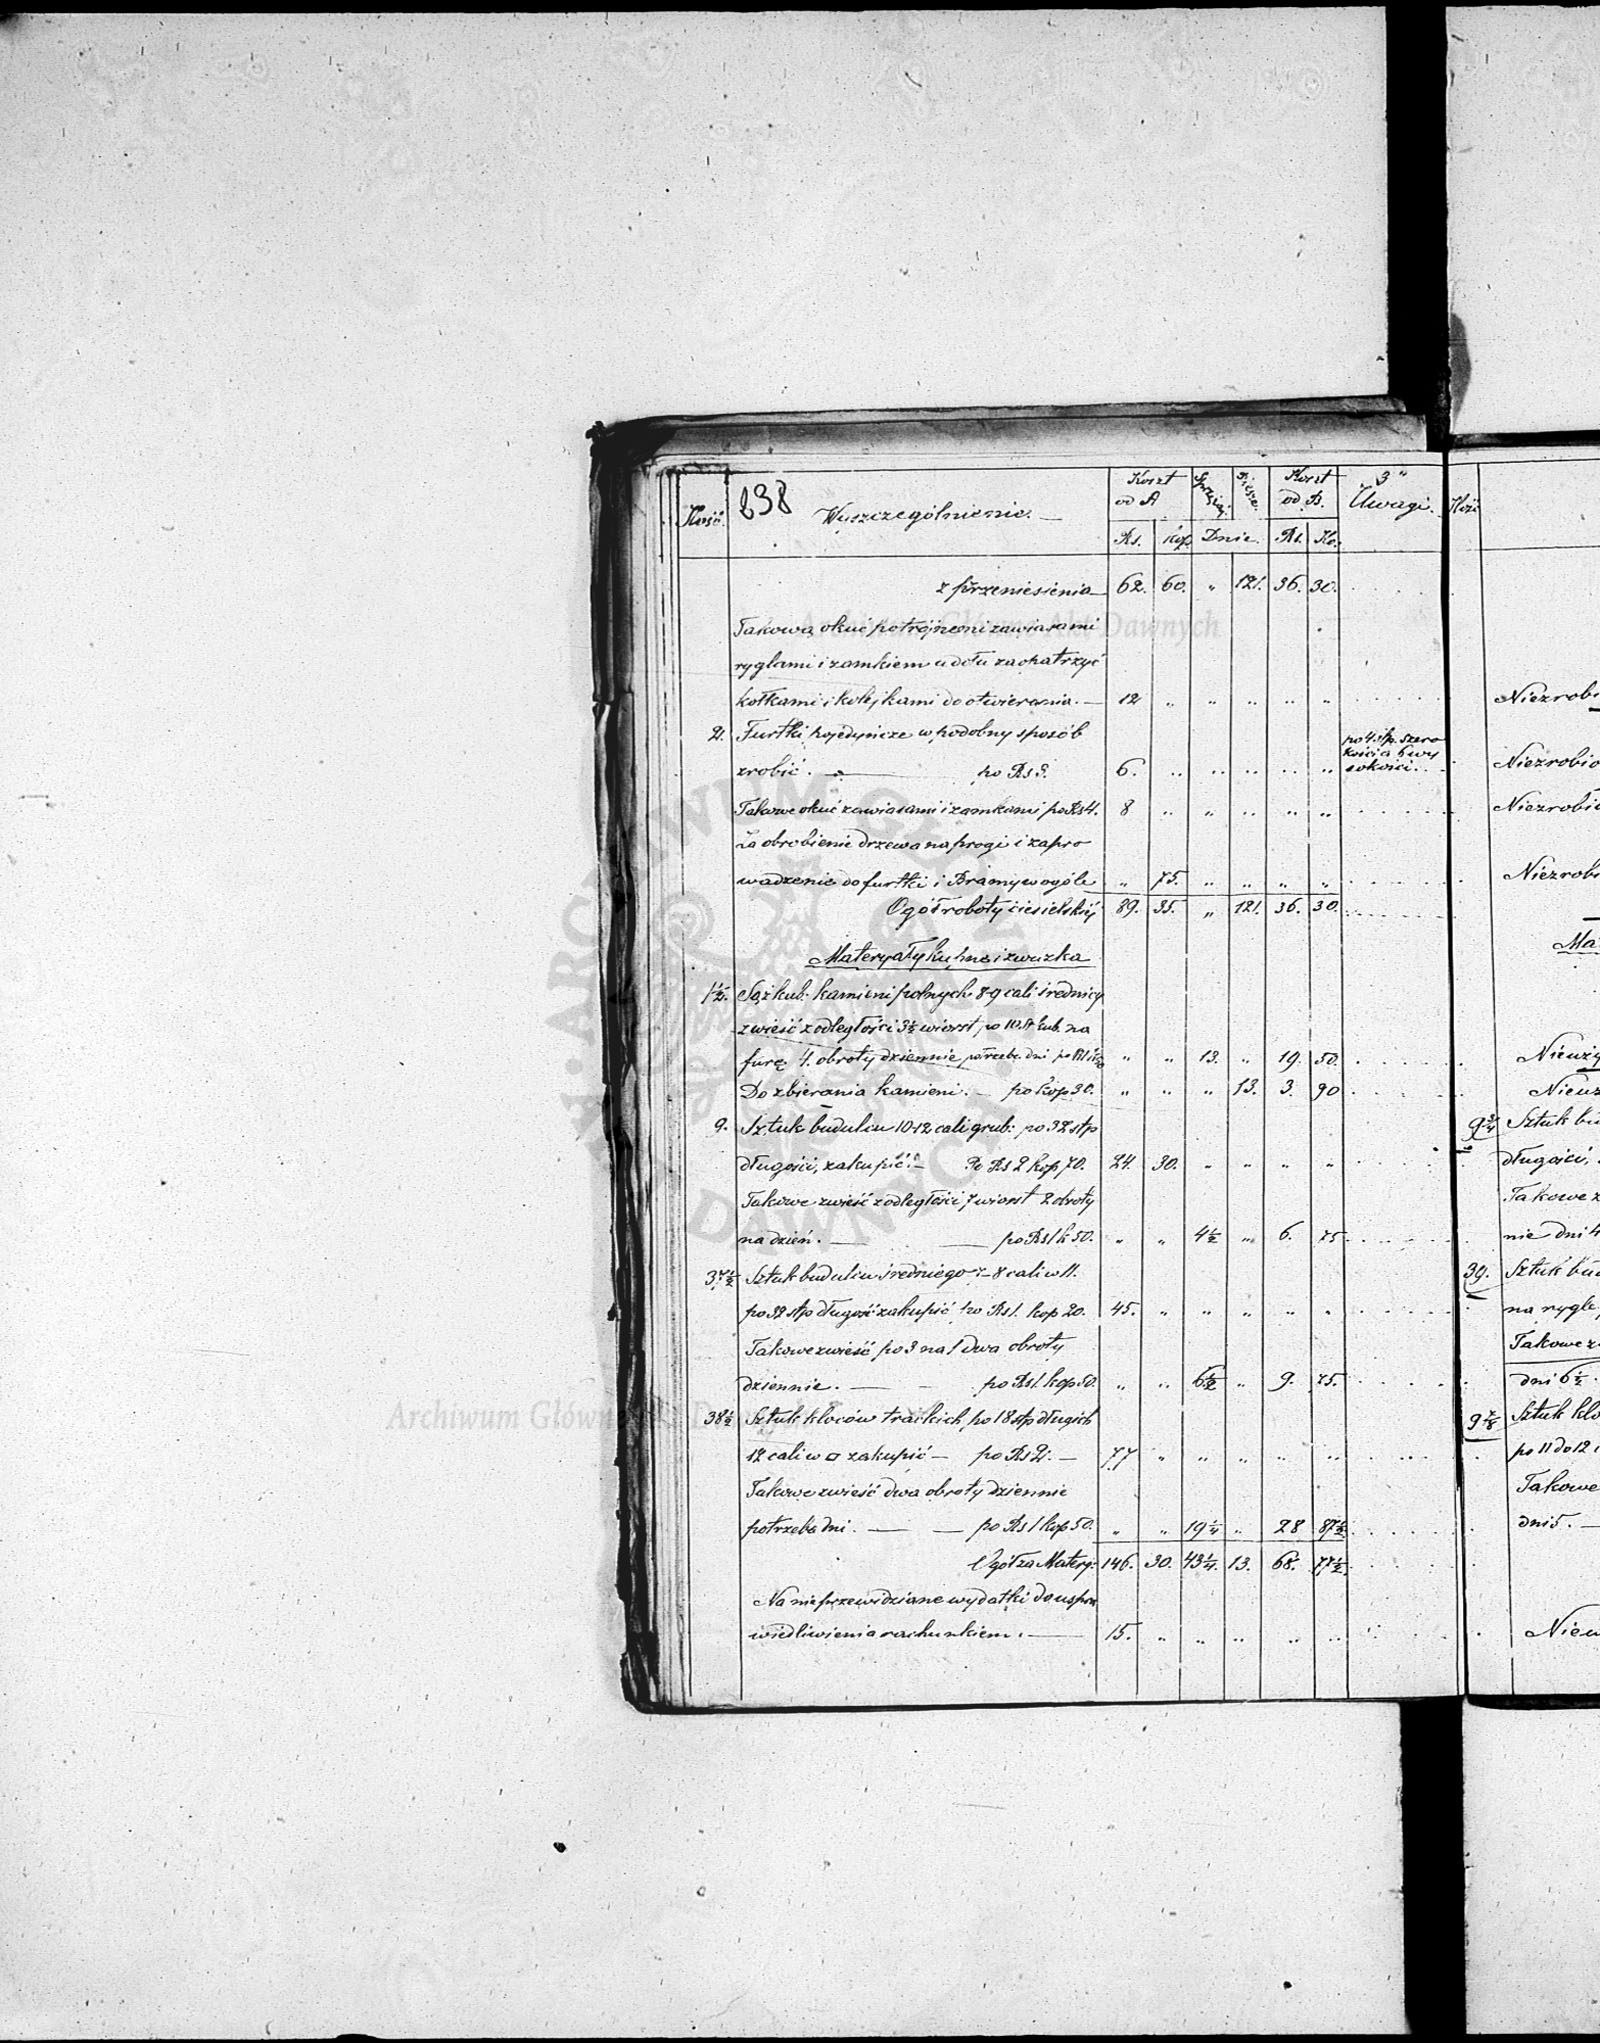 238
Ilość. Wyszczególnienie. Koszt od A Sprzęż: Piesze. Koszt od B. 3" Uwagi. Ilość
Rs. kop. Dnie. Rs. Ko:
z przeniesienia 62. 60. " 121. 36. 30.
Takową okuć potrójnemi zawiasami
ryglami i zamkiem u dołu zaopatrzyć
kołkami i kolejkami do otwierania. 12 " " " " "
2. Furtki pojedyńcze w podobny sposób
zrobić. po Rs 3. 6. " " " " " po 4 stp. szero
kości a 6 wy
sokości.
Takowe okuć zawiasami i zamkami po Rs 4. 8 " " " " "
Za obrobienie drzewa na progi i zapro
wadzenie do furtki i Bramy w ogóle " 75. " " " "
Ogół roboty ciesielskiéj 89. 35. " 121. 36. 30.
Materyały kupno i zwózka
1½. Sąż kub. kamieni polnych 8-9 cali średnicy
zwieść z odległości 3½ wiorst, po 10 st kub. na
furę 4. obroty dziennie potrzeba dni po Rs 1 k 50 " " 13. " 19. 50.
Do zbierania kamieni. po kop 30. " " " 13. 3. 90
9. Sztuk budulcu 10-12 cali grub: po 32 stp
długości, zakupić. Po Rs 2 kop 70. 24. 30. " " " "
Takowe zwieść z odległości 7 wiorst 2 obroty
na dzień. po Rs 1 k 50. " " 4½ " 6. 75.
37½ Sztuk budulcu średniego 7-8 cali w ll.
po 32 stp długość zakupić po Rs 1. kop 20. 45. " " " " "
Takowe zwieść po 3 na 1 dwa obroty
dziennie. po Rs 1. kop 50. " " 6½ " 9. 75.
38½ Sztuk kloców trackich po 18 stp długich
12 cali w □ zakupić po Rs 2. 77 " " " " "
Takowe zwieść dwa obroty dziennie
potrzeba dni. po Rs 1 kop 50. " " 19¼ " 28 87½
Ogół za Matery: 146. 30. 43¼. 13. 68. 77½.
Na nieprzewidziane wydatki do uspra
wiedliwienia rachunkiem. 15. " " " " "
Niezrobi
Niezrobio
Niezrobio
Niezrobi
Ma
Nieuży
Nieuż
9¾ Sztuk bu
długości,
Takowe z
nie dni 4
39. Sztuk bud
na rygle,
Takowe z
dni 6½.
9⅞ Sztuk klo
po 11 do 12 c
Takowe
dni 5.
Nieu
Archiwum Główne Akt Dawnych
Archiwum Główne Akt Dawnych
ARCHIWUM GŁÓWNE AKT DAWNYCH